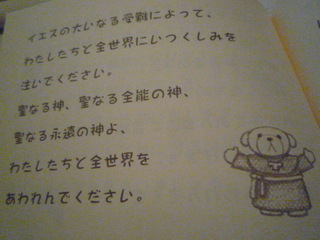 イエスの大いなる受難によって、
わたしたちと全世界にいつくしみを
注いでください。
聖なる神、聖なる全能の神、
聖なる永遠の神よ、
わたしたちと全世界を
あわれんでください。